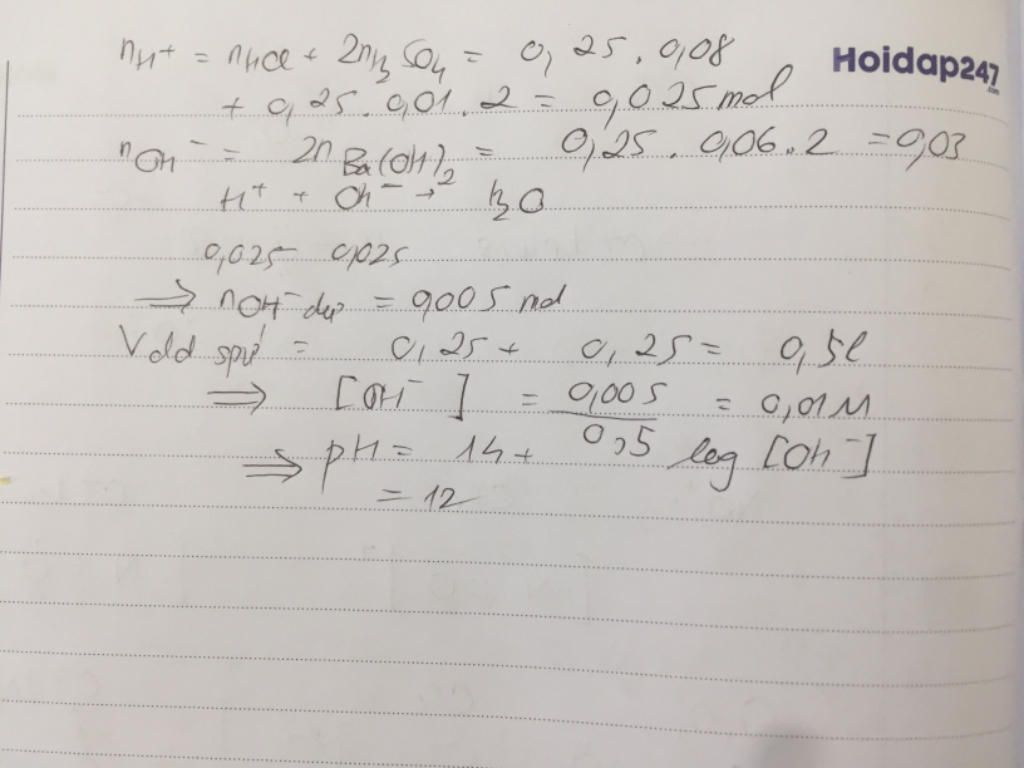 nH+ = nHCl + 2nH2SO4 = 0,25.0,08
Hoidap247
.com
+ 0,25.0,01.2 = 0,025 mol
nOH- = 2nBa(OH)2 = 0,25.0,06.2 = 0,03
H+ + OH- → H2O
0,025 0,025
⇒ nOH- dư = 0,005 mol
Vdd spứ = 0,25 + 0,25 = 0,5l
⇒ [OH-] = 0,005/0,5 = 0,01M
⇒ pH = 14 + log [OH-]
= 12